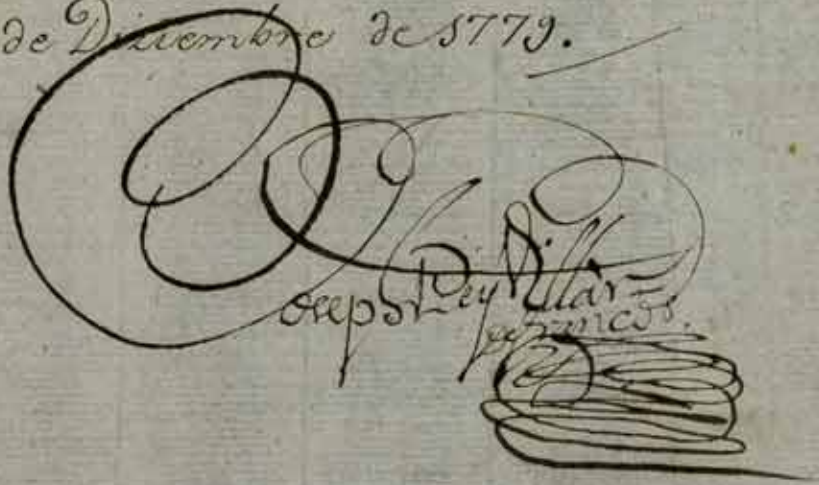 de Diziembre de 1779.
Joseph Rey Villar=
defrancos.